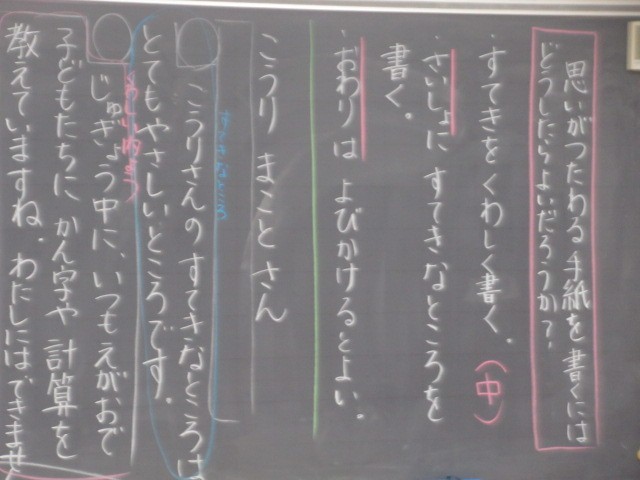 思いがつたわる手紙を書くには
どうしたらよいだろうか?
・すてきをくわしく書く。(中)
・さいしょにすてきなところを
書く。
・おわりはよびかけるとよい。
こうり まこと さん
すてきなところ
こうりさんのすてきなところは
とてもやさしいところです。
くわしい内よう
じゅぎょう中に、いつもえがおで
子どもたちにかん字や計算を
教えていますね。わたしにはできませ